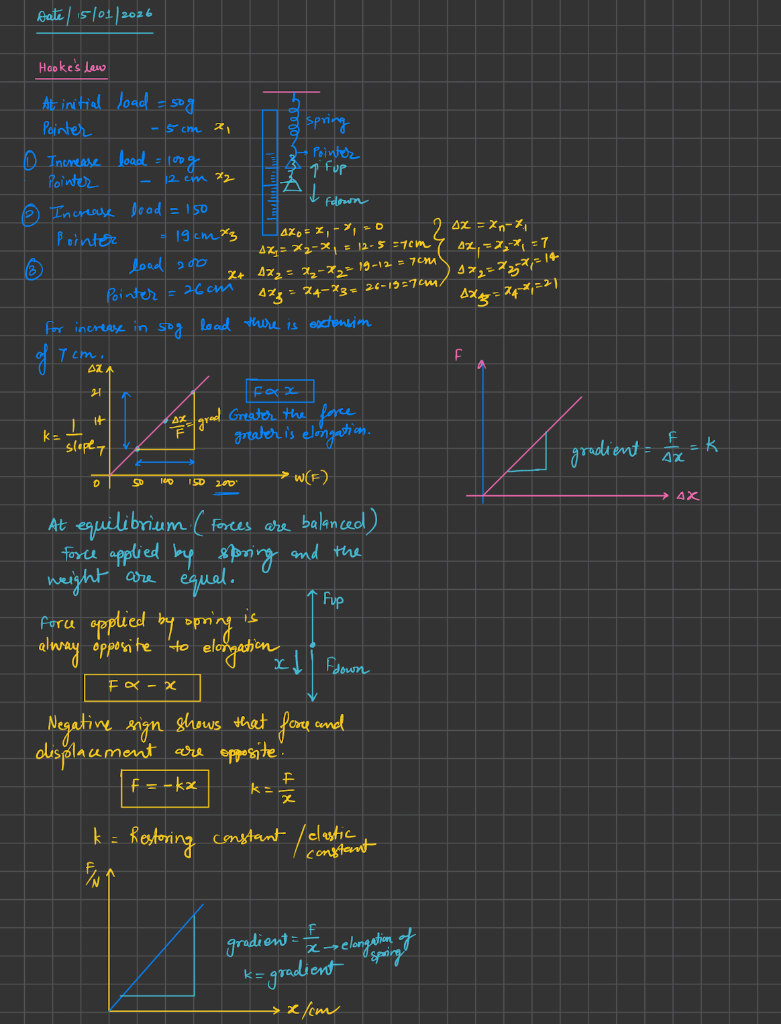 Date/ 15/01/2026
Hooke's Law
At initial load = 50g
Pointer - 5 cm x₁
① Increase load = 100g
Pointer - 12 cm x₂
② Increase load = 150
Pointer = 19 cm x₃
③ load 200 x₄
Pointer = 26 cm
spring
→ Pointer
↑ Fup
↓ Fdown
Δx₀ = x₁ - x₁ = 0
Δx₁ = x₂ - x₁ = 12-5 = 7cm
Δx₂ = x₂ - x₂ = 19-12 = 7cm
Δx₃ = x₄ - x₃ = 26-19 = 7cm
Δx = xₙ - x₁
Δx₁ = x₂ - x₁ = 7
Δx₂ = x₃ - x₁ = 14
Δx₃ = x₄ - x₁ = 21
For increase in 50g load there is extension
of 7 cm.
Δx
21
14
7
0 50 100 150 200
W(F)
k = 1/slope
Δx/F = grad
F ∝ x
Greater the force
greater is elongation.
F
gradient = F/Δx = k
Δx
At equilibrium (Forces are balanced)
Force applied by spring and the
weight are equal.
Force applied by spring is
alway opposite to elongation
Fup
x ↓ Fdown
F ∝ - x
Negative sign shows that force and
displacement are opposite.
F = -kx k = F/x
k = Restoring constant / elastic
constant
F/N
gradient = F/x → elongation of
spring
k = gradient
x/cm